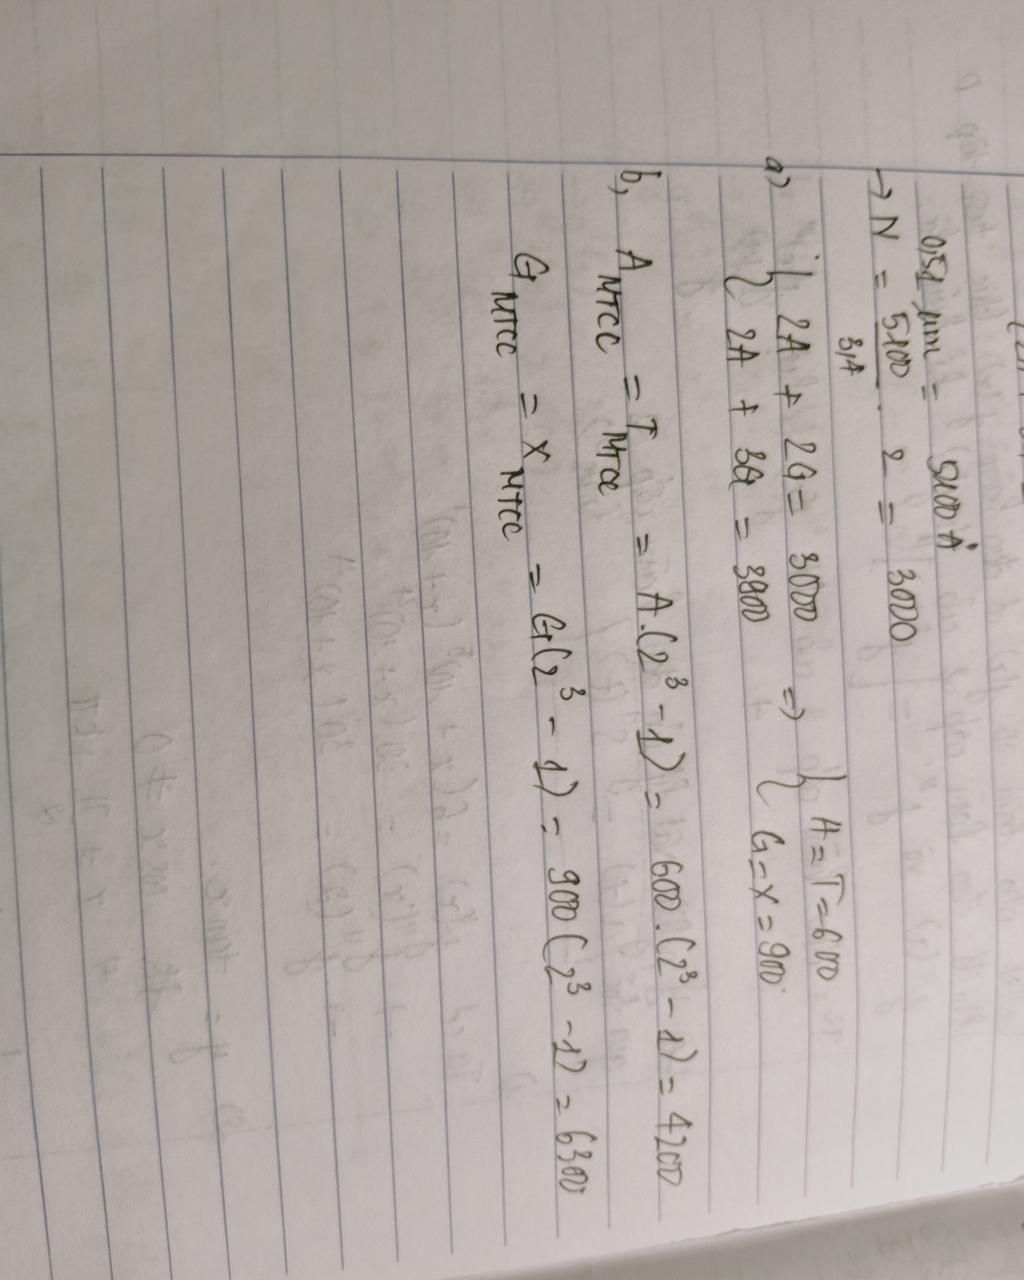 0,51 µm = 5100 Å
→ N = 5100/3,4 . 2 = 3000
a) { 2A + 2G = 3000 => { A = T = 600
{ 2A + 3G = 3900 { G = X = 900
b, A MTCC = T MTCC = A.(2³ - 1) = 600.(2³ - 1) = 4200
G MTCC = X MTCC = G(2³ - 1) = 900(2³ - 1) = 6300